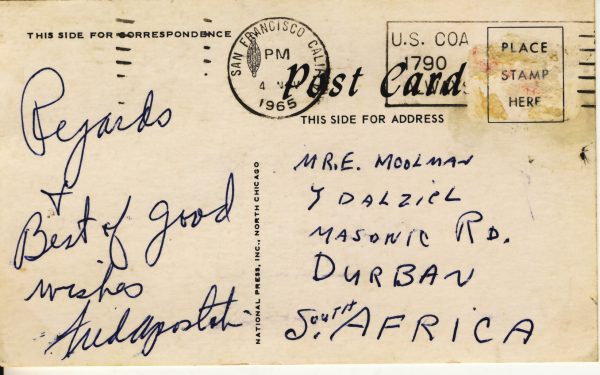 THIS SIDE FOR CORRESPONDENCE
SAN FRANCISCO CALIF
PM
4
1965
U.S. COA
1790
PLACE
STAMP
HERE
Post Card
THIS SIDE FOR ADDRESS
Regards
+
Best of good
wishes
NATIONAL PRESS, INC., NORTH CHICAGO
MR. E. MOOLMAN
7 DALZIEL
MASONIC RD.
DURBAN
SOUTH AFRICA